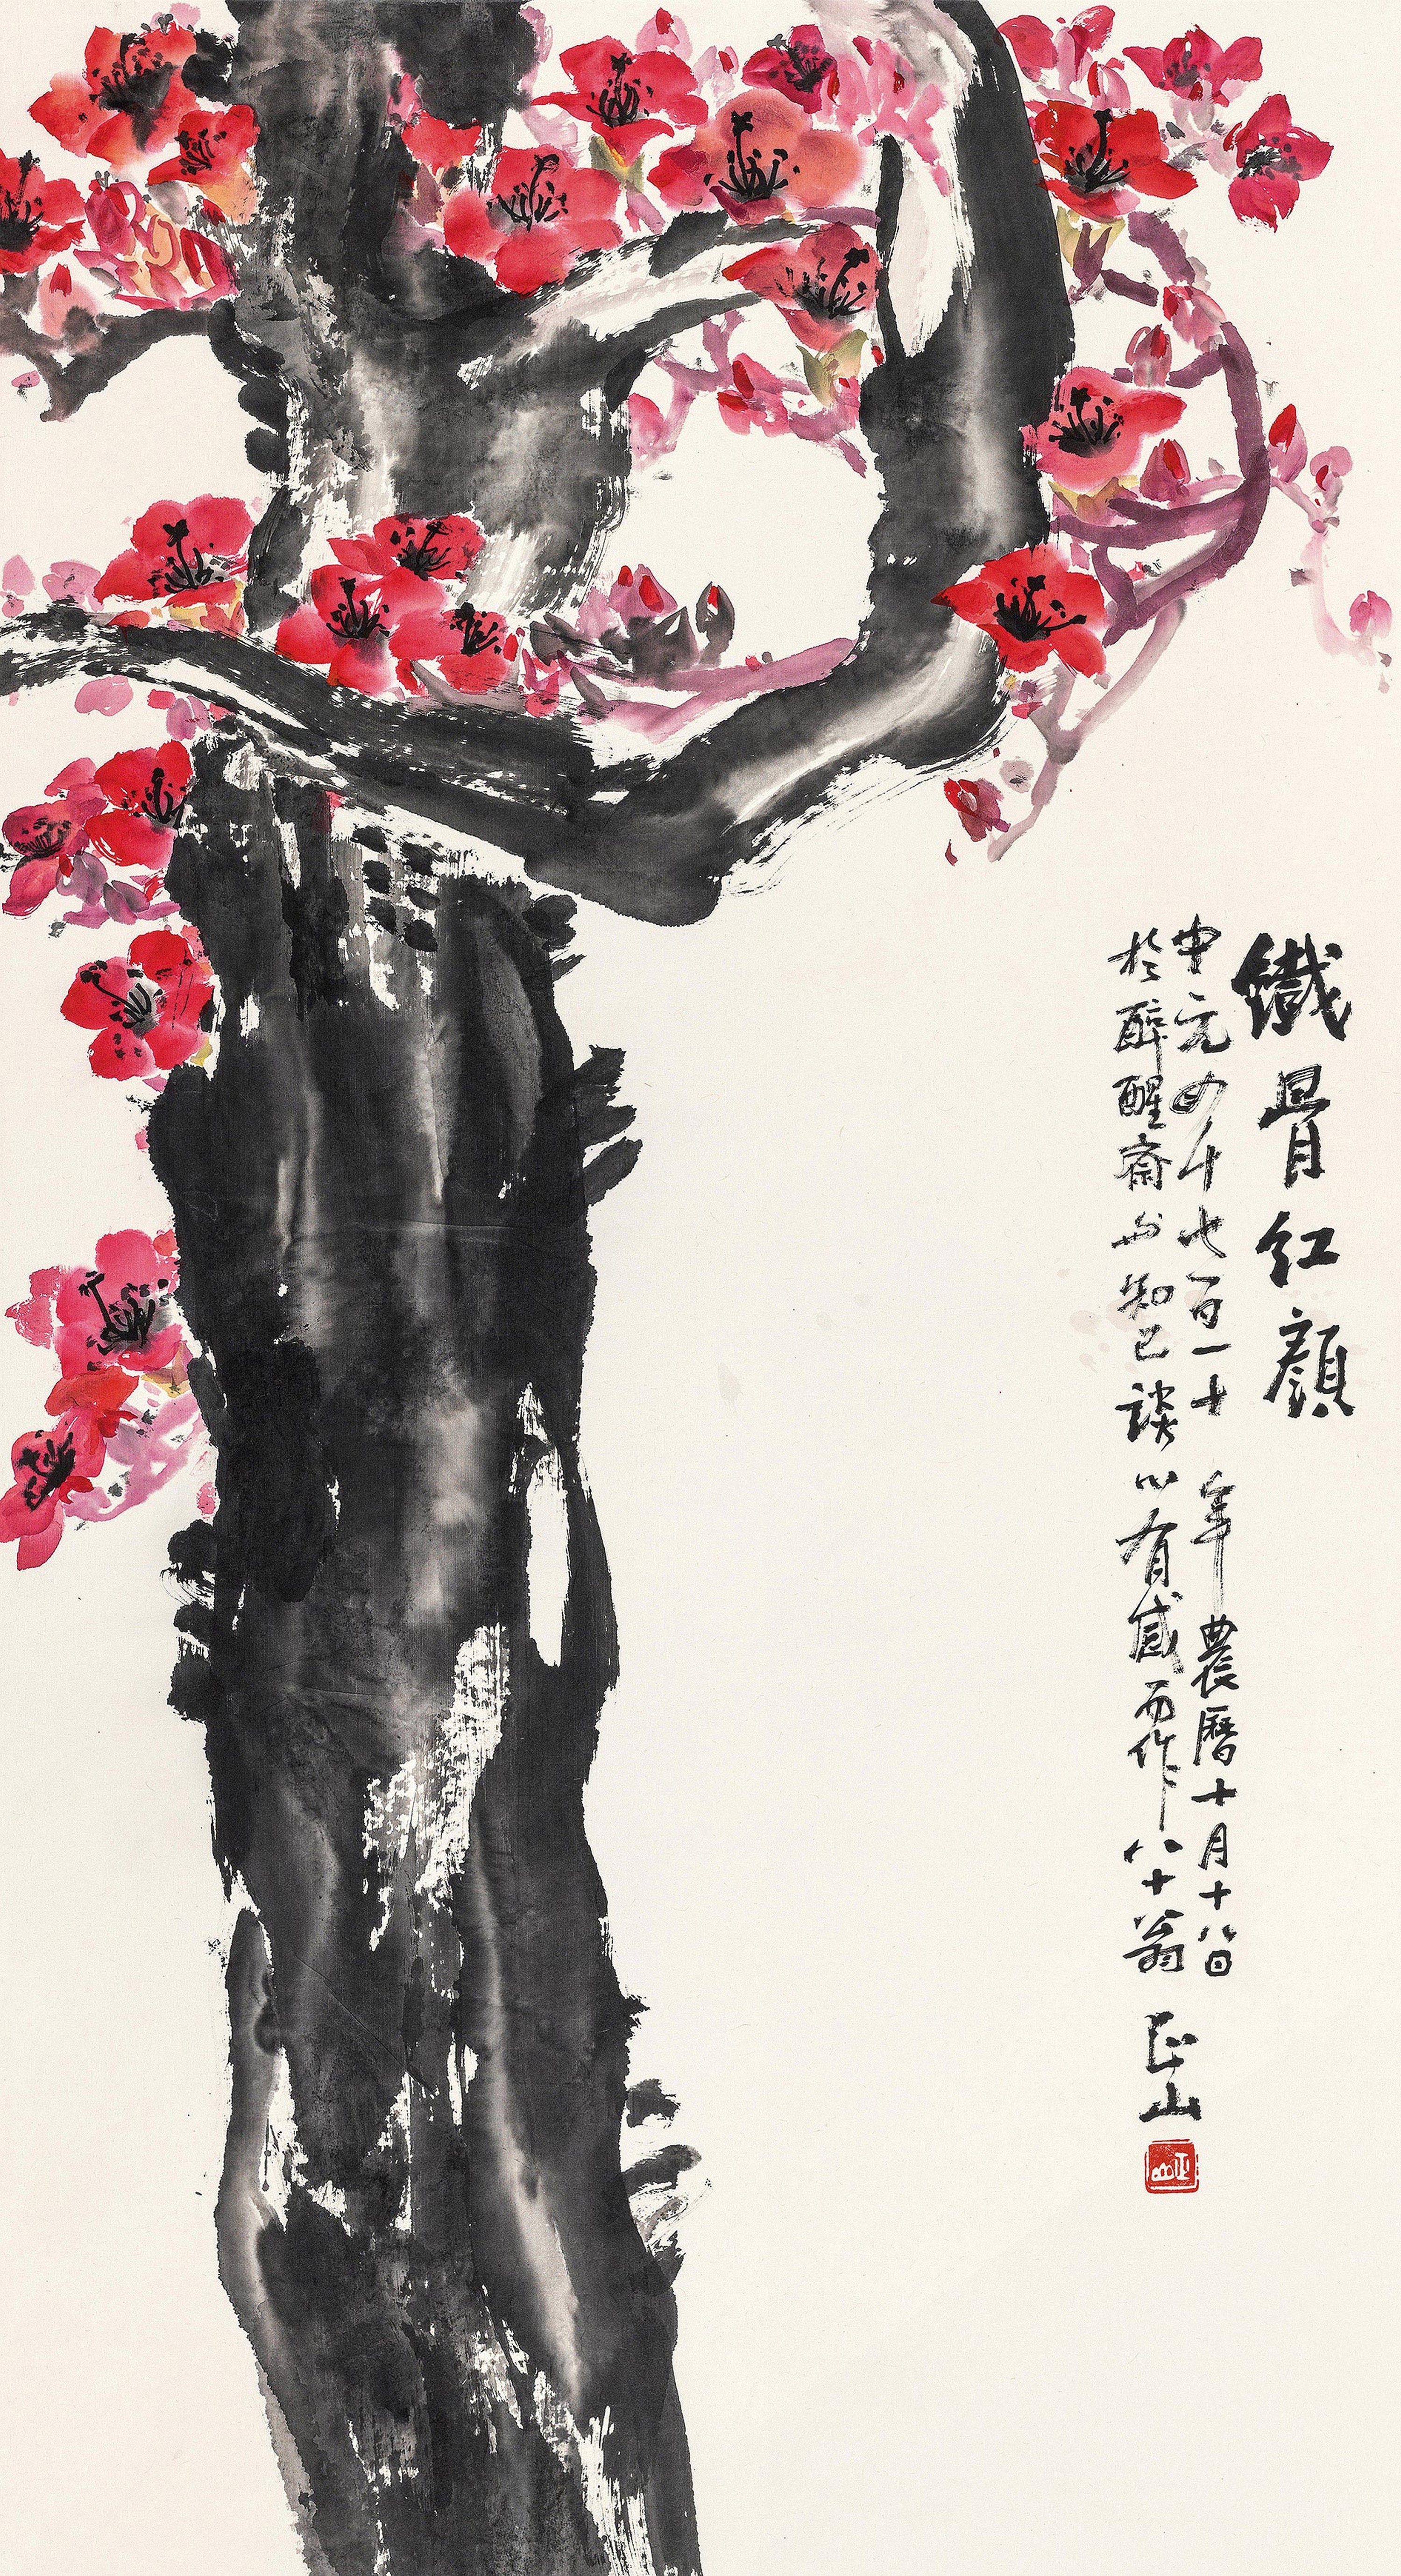 鐵骨红顏
中元四千七百一十年農曆十月十八日
於醉醒斋与知己談心有感而作八十翁正山
正山